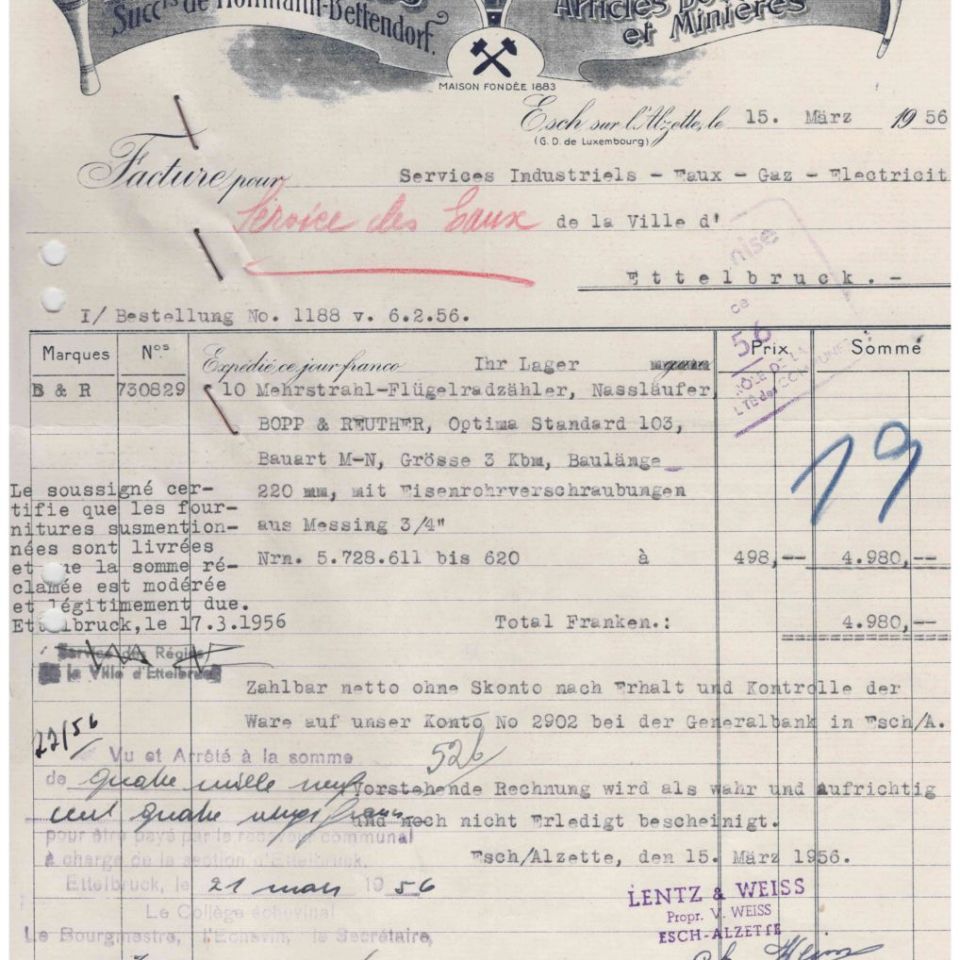 Succrs de Hoffmann-Bettendorf.
Articles
et Minières
MAISON FONDÉE 1883
Esch sur l'Alzette, le 15. März 1956
(G. D. de Luxembourg)
Facture pour Services Industriels - Eaux - Gaz - Electricit
Service des Eaux de la Ville d'
Ettelbruck.-
I/ Bestellung No. 1188 v. 6.2.56.
Marques Nos Expédié ce jour franco Ihr Lager Prix Somme
B & R 730829 10 Mehrstrahl-Flügelradzähler, Nassläufer,
BOPP & REUTHER, Optima Standard 103,
Bauart M-N, Grösse 3 Kbm, Baulänge
220 mm, mit Eisenrohrverschraubungen
aus Messing 3/4"
Nrn. 5.728.611 bis 620 à 498,-- 4.980,--
19
Le soussigné cer-
tifie que les four-
nitures susmention-
nées sont livrées
et que la somme ré-
clamée est modérée
et légitimement due.
Ettelbruck, le 17.3.1956
Total Franken.: 4.980,--
Service des Régies
de la Ville d'Ettelbruck
Zahlbar netto ohne Skonto nach Erhalt und Kontrolle der
Ware auf unser Konto No 2902 bei der Generalbank in Esch/A.
22/56
526
Vu et Arrêté à la somme
de quatre mille neuf
cent quatre vingt francs
pour être payé par le receveur communal
à charge de la section d'Ettelbruck.
Ettelbruck, le 21 mars 1956
Le Collège échevinal
Le Bourgmestre, l'Echevin, le Secrétaire,
Vorstehende Rechnung wird als wahr und aufrichtig
und noch nicht Erledigt bescheinigt.
Esch/Alzette, den 15. März 1956.
LENTZ & WEISS
Propr. V. WEISS
ESCH-ALZETTE